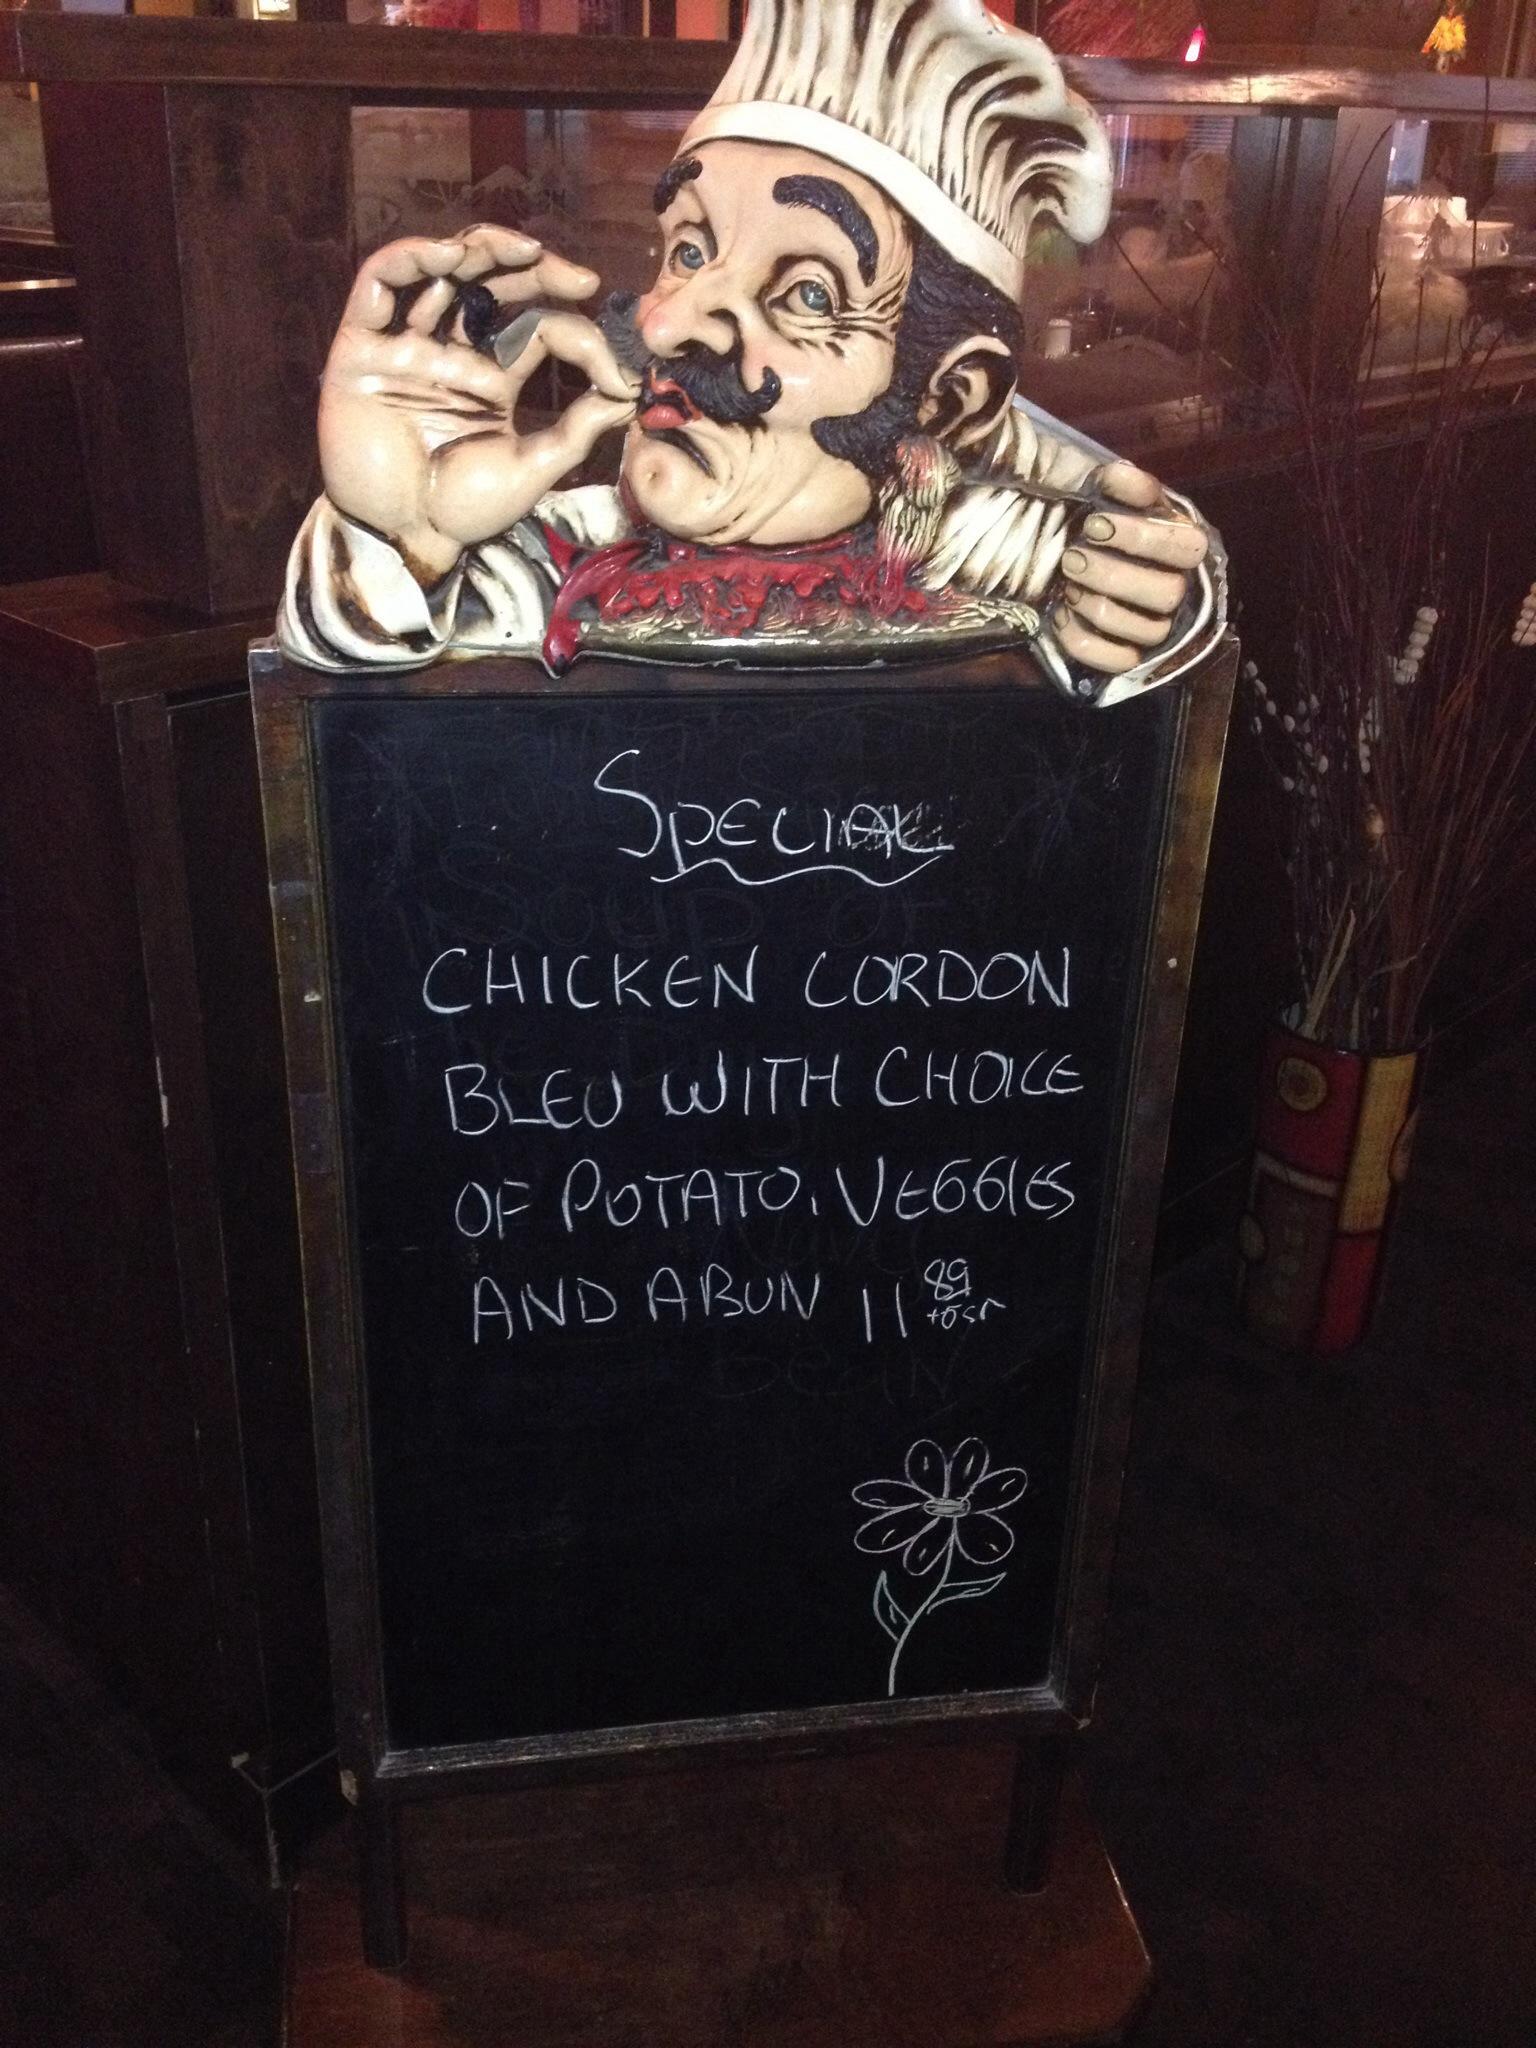 SPECIAL
CHICKEN CORDON
BLEU WITH CHOICE
OF POTATO, VEGGIES
AND A BUN 11 89
SOUP OF